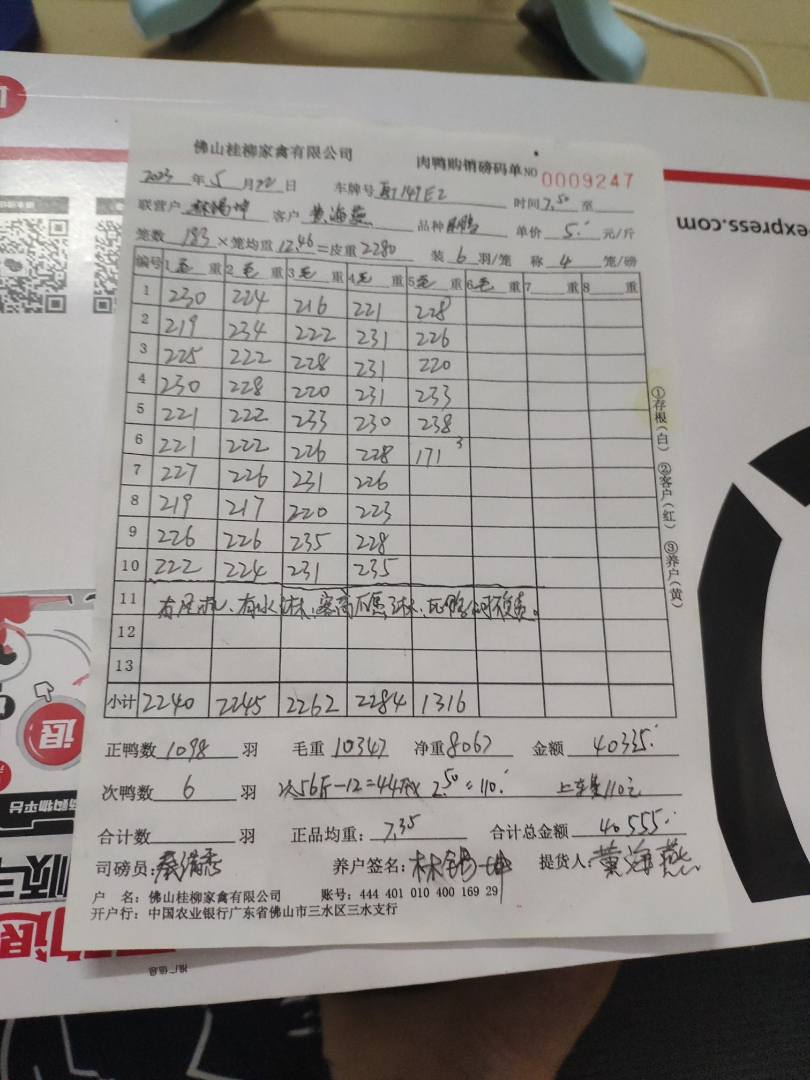 佛山桂柳家禽有限公司 肉鸭购销磅码单 NO 0009247
2023 年 5 月 22 日 车牌号 时间 7.50 至
联营户 林锡坤 客户 黄海燕 品种 单价 5. 元/斤
笼数 183 × 笼均重 12.46 = 皮重 2280 装 6 羽/笼 称 4 笼/磅
编号 1 毛 重 2 毛 重 3 毛 重 4 毛 重 5 毛 重 6 毛 重 7 重 8 重
1 230 224 216 221 228
2 219 234 222 231 226
3 225 222 228 231 220
4 230 228 220 231 233
5 221 222 233 230 238
6 221 222 226 228 171 3
7 227 226 231 226
8 219 217 220 223
9 226 226 235 228
10 222 224 231 235
11
12
13
小计 2240 2245 2262 2284 1316
正鸭数 1098 羽 毛重 10347 净重 8067 金额 40335.
次鸭数 6 羽 次56斤-12=44斤× 2.50 = 110. 上车费110元
合计数 羽 正品均重: 7.35 合计总金额 40555.
司磅员: 养户签名: 林锡坤 提货人: 黄海燕
户 名: 佛山桂柳家禽有限公司 账号: 444 401 010 400 169 29
开户行: 中国农业银行广东省佛山市三水区三水支行
①存根(白) ②客户(红) ③养户(黄)
express.com
退
购物平台
推广信息